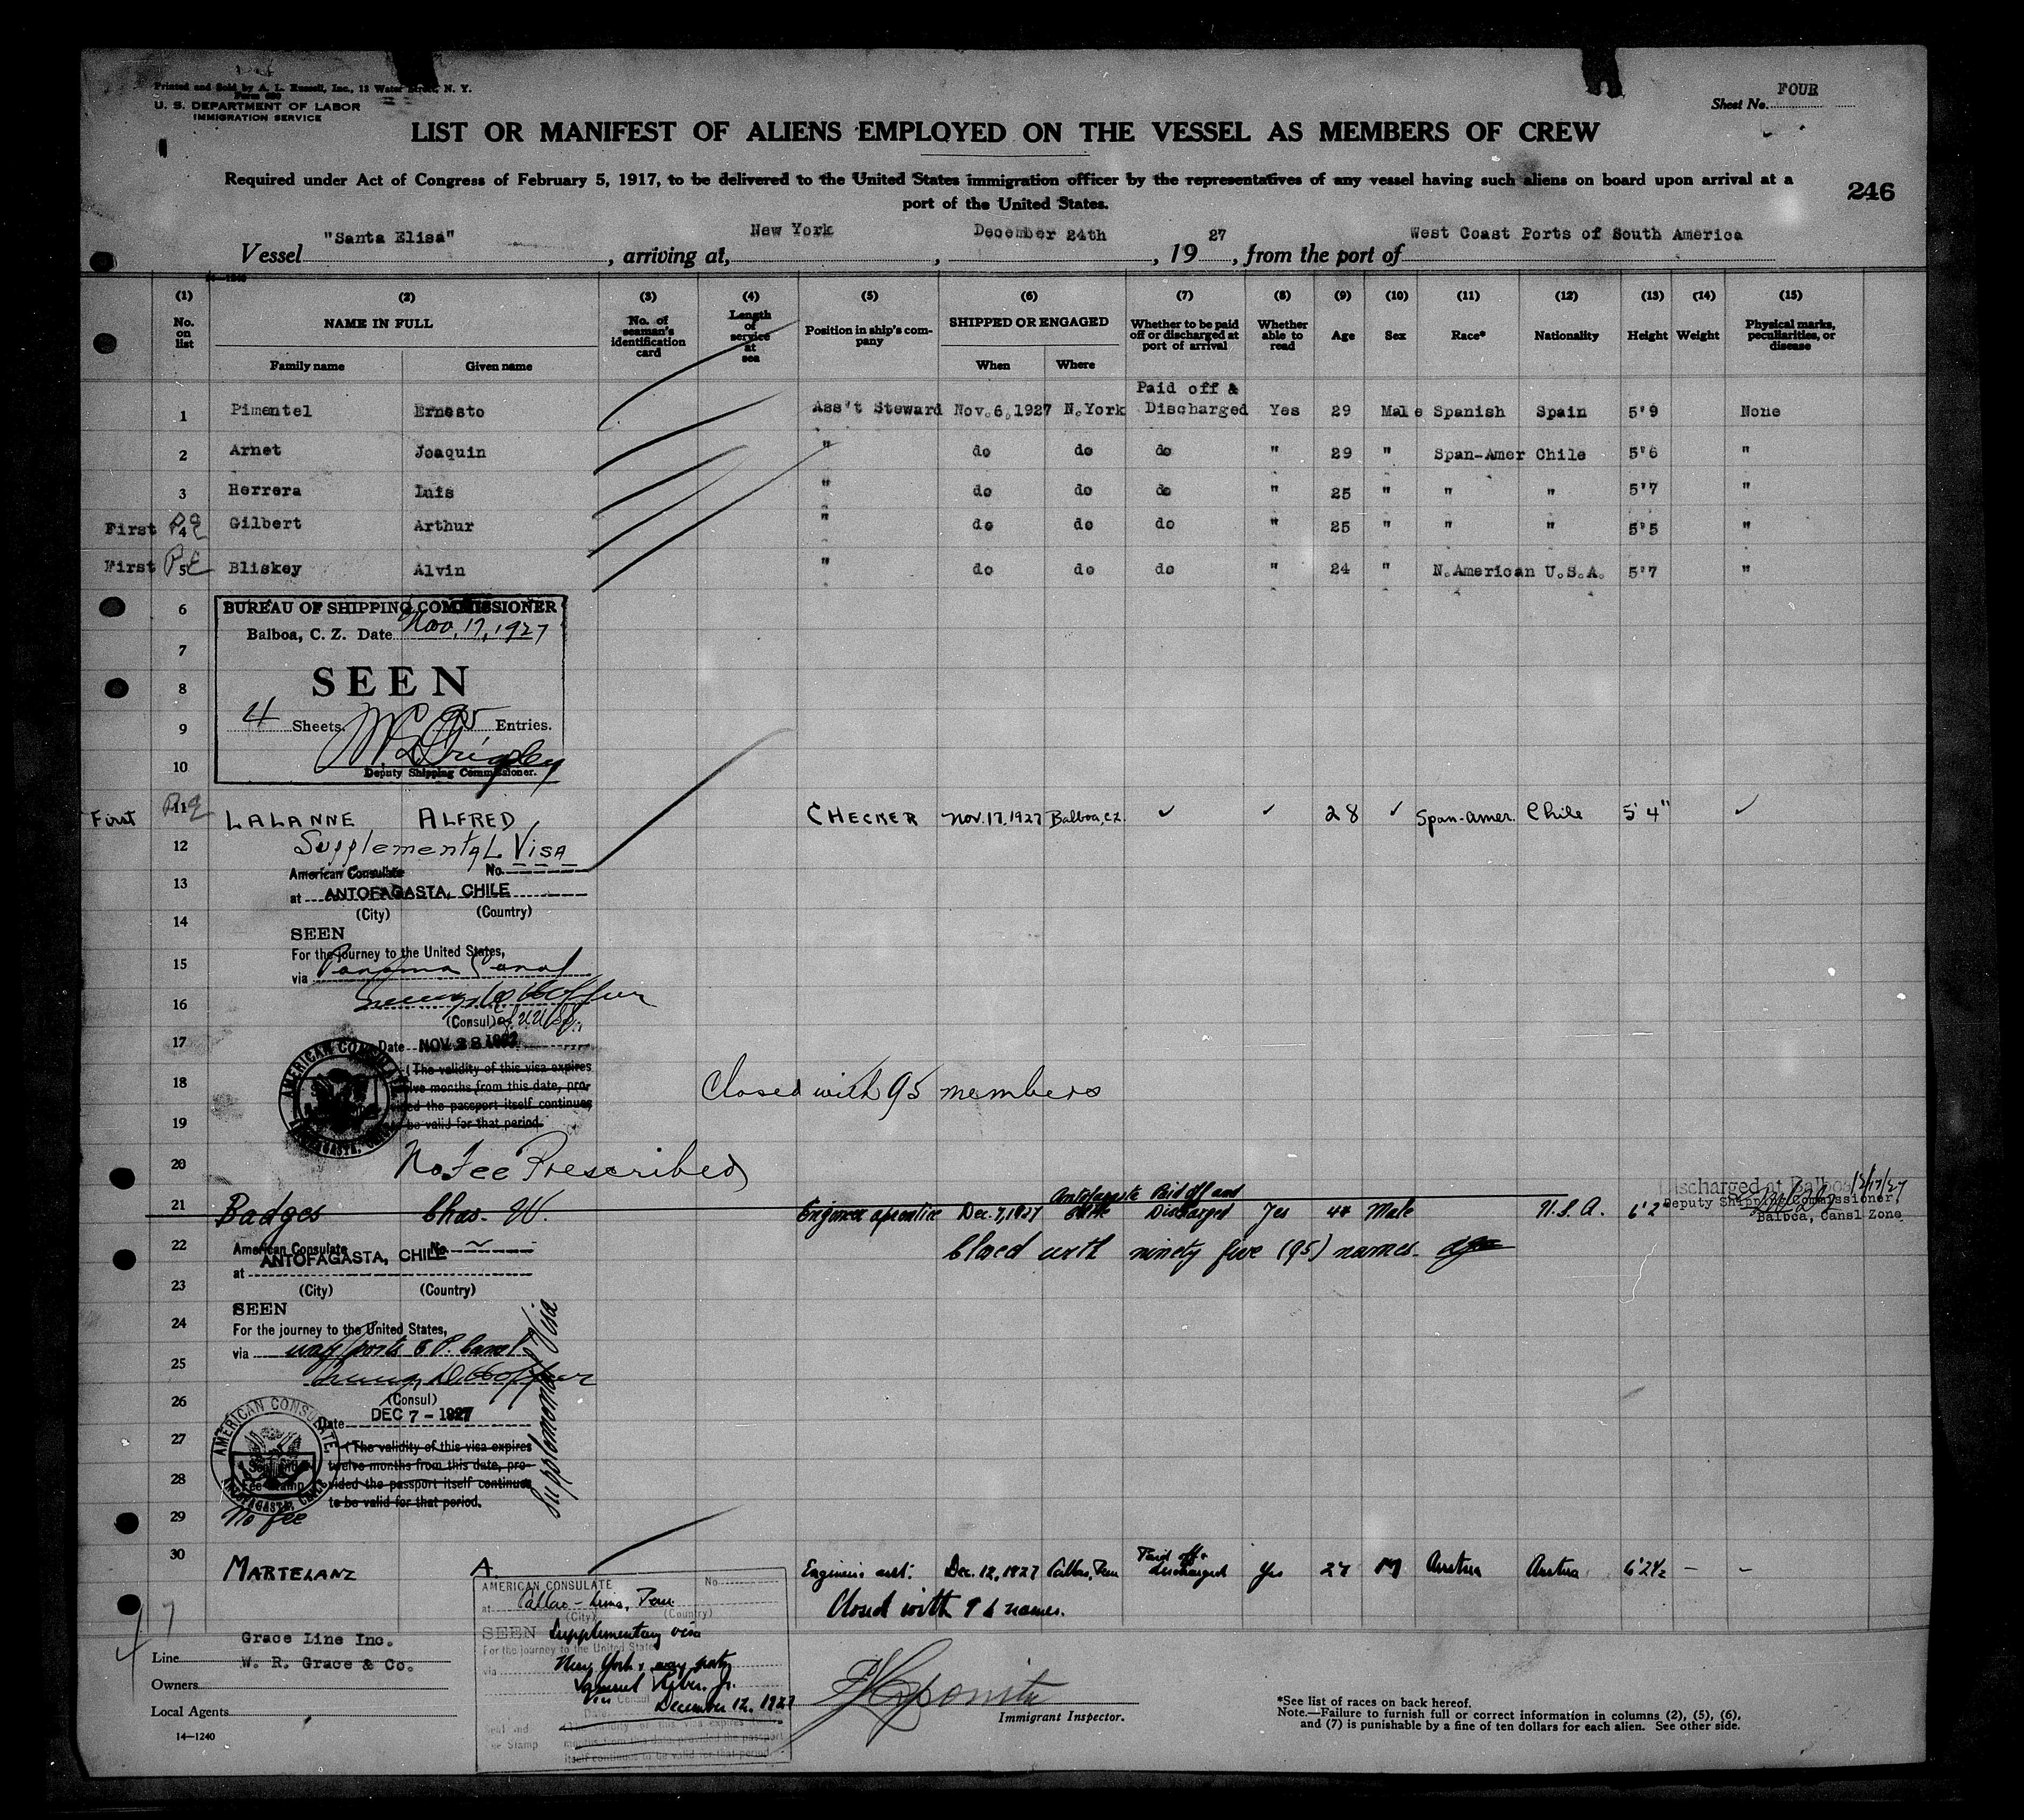 Printed and Sold by A. L. Russell, Inc., 13 Water Street, N. Y.
U. S. DEPARTMENT OF LABOR
IMMIGRATION SERVICE
Sheet No. FOUR
LIST OR MANIFEST OF ALIENS EMPLOYED ON THE VESSEL AS MEMBERS OF CREW
Required under Act of Congress of February 5, 1917, to be delivered to the United States immigration officer by the representatives of any vessel having such aliens on board upon arrival at a
port of the United States.
246
Vessel "Santa Elisa", arriving at, New York, December 24th, 1927, from the port of West Coast Ports of South America
14—1240
(1) (2) (3) (4) (5) (6) (7) (8) (9) (10) (11) (12) (13) (14) (15)
No. on list NAME IN FULL Family name Given name No. of seaman's identification card Length of service at sea Position in ship's company SHIPPED OR ENGAGED When Where Whether to be paid off or discharged at port of arrival Whether able to read Age Sex Race* Nationality Height Weight Physical marks, peculiarities, or disease
1 Pimentel Ernesto Ass't Steward Nov.6,1927 N.York Paid off & Discharged Yes 29 Male Spanish Spain 5'9 None
2 Arnet Joaquin " do do do " 29 " Span-Amer Chile 5'6 "
3 Herrera Luis " do do do " 25 " " " 5'7 "
First 4 Gilbert Arthur " do do do " 25 " " " 5'5 "
First 5 Bliskey Alvin " do do do " 24 " N.American U.S.A. 5'7 "
6 BUREAU OF SHIPPING COMMISSIONER
Balboa, C. Z. Date Nov. 17, 1927
7
8 SEEN
9 4 Sheets. 95 Entries.
10 Deputy Shipping Commissioner.
First 11 LALANNE ALFRED CHECKER Nov.17,1927 Balboa, CZ. ✓ ✓ 28 ✓ Span-Amer. Chile 5'4" ✓
12 Supplemental Visa
American Consulate No.
13 at ANTOFAGASTA, CHILE
(City) (Country)
14 SEEN
For the journey to the United States,
15 via Panama Canal
16
(Consul)
17 Date NOV 28 1927
(The validity of this visa expires
18 twelve months from this date, pro-
vided the passport itself continues
19 to be valid for that period.
AMERICAN CONSULATE
ANTOFAGASTA, CHILE
Closed with 95 members
20 No Fee Prescribed
21 Badges Chas. W. Engineer aprentice Dec. 7, 1927 Antofagasta Chile Paid off and Discharged Yes 44 Male U.S.A. 6'2"
Discharged at Balboa 12/17/27
Deputy Shipping Commissioner
Balboa, Canal Zone
22 American Consulate No.
Closed with ninety five (95) names.
at ANTOFAGASTA, CHILE
23 (City) (Country)
SEEN
24 For the journey to the United States,
via way ports & P. Canal
25
26 (Consul)
Date DEC 7 - 1927
27 (The validity of this visa expires
twelve months from this date, pro-
28 vided the passport itself continues
to be valid for that period.
AMERICAN CONSULATE
ANTOFAGASTA, CHILE
29 No fee
Supplemental Visa
30 MARTELANZ A. Engineers asst: Dec. 12, 1927 Callao, Peru Paid off & discharged Yes 27 M Austria Austria 6'2½ – –
Closed with 96 names.
AMERICAN CONSULATE No.
at Callao-Lima, Peru
(City) (Country)
SEEN Supplementary visa
For the journey to the United States
via New York & way ports
Vice Consul
December 12, 1927
Date
Seal and
Fee Stamp
(The validity of this visa expires
months from this date, provided the passport
itself continues to be valid for that period
Line Grace Line Inc.
Owners W. R. Grace & Co.
Local Agents
14—1240
Immigrant Inspector.
*See list of races on back hereof.
Note.—Failure to furnish full or correct information in columns (2), (5), (6),
and (7) is punishable by a fine of ten dollars for each alien. See other side.